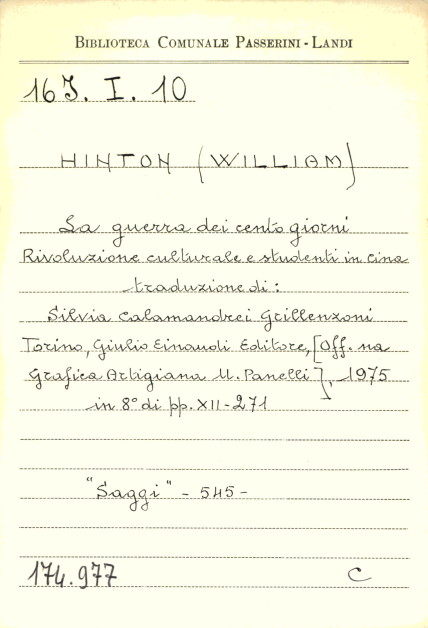 BIBLIOTECA COMUNALE PASSERINI - LANDI
16J. I. 10
HINTON (WILLIAM)
La guerra dei cento giorni
Rivoluzione culturale e studenti in Cina
traduzione di:
Silvia Calamandrei Grillenzoni
Torino, Giulio Einaudi Editore, [Off. na
Grafica Artigiana M. Panelli], 1975
in 8° di pp. XII - 271
"Saggi" - 545 -
174.977 C